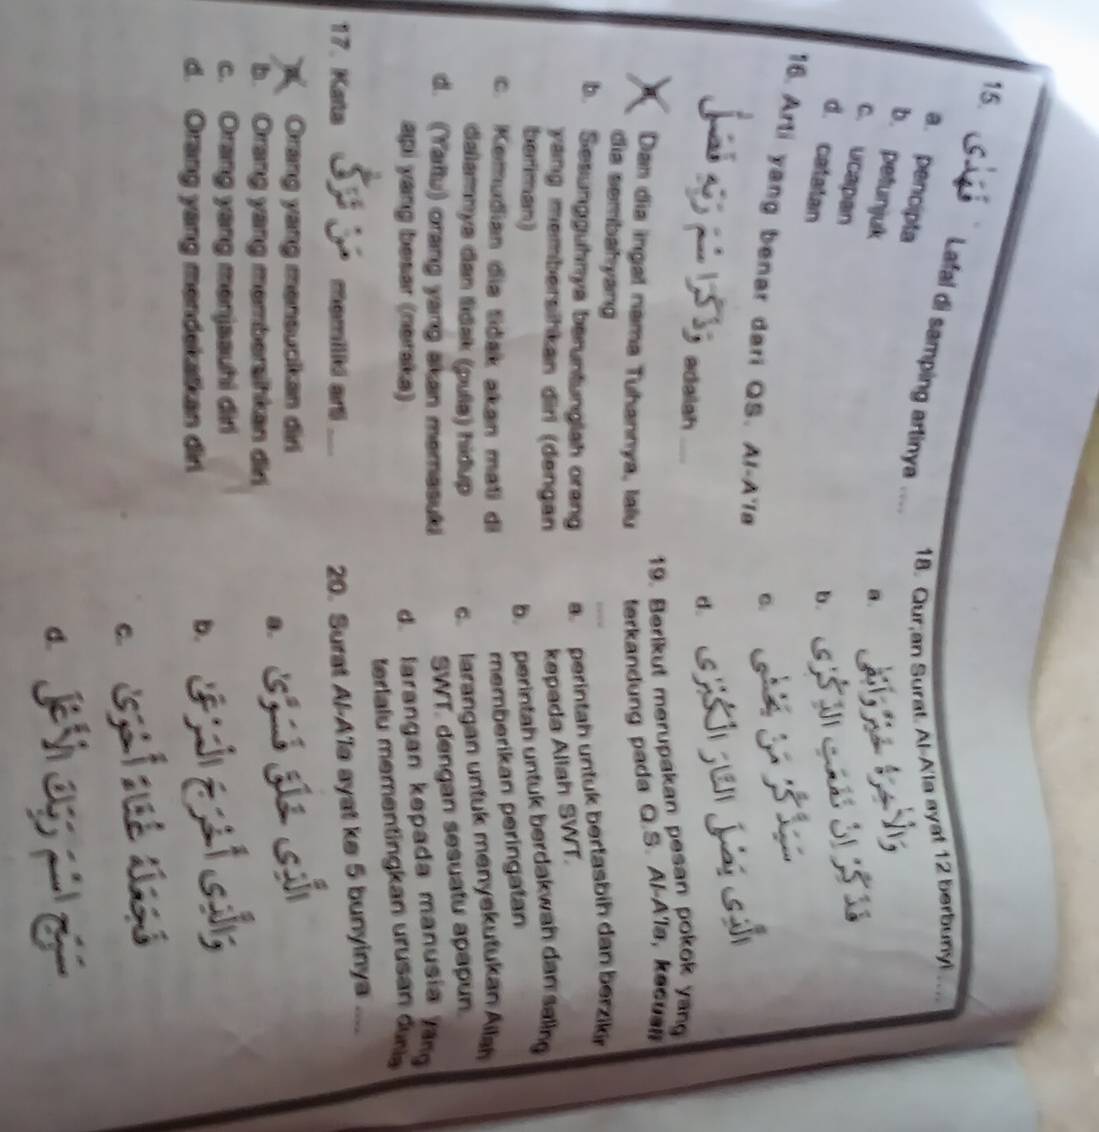 15. فَهَدٰى Lafal di samping artinya ....
a. pencipta
b. petunjuk
c. ucapan
d. catatan
16. Arti yang benar dari QS. Al-A'la
وَذَكَرَ اسْمَ رَبِّهٖ فَصَلّٰى adalah ....
a. Dan dia ingat nama Tuhannya, lalu
dia sembahyang
b. Sesungguhnya beruntunglah orang
yang membersihkan diri (dengan
beriman)
c. Kemudian dia tidak akan mati di
dalamnya dan tidak (pula) hidup
d. (Yaitu) orang yang akan memasuki
api yang besar (neraka)
17. Kata مَنْ تَزَكّٰى memiliki arti ....
a. Orang yang mensucikan diri
b. Orang yang membersihkan diri
c. Orang yang menjaauhi diri
d. Orang yang mendekatkan diri
18. Qur,an Surat. Al-A'la ayat 12 berbunyi ....
a. وَالْاٰخِرَةُ خَيْرٌ وَّاَبْقٰى
b. فَذَكِّرْ اِنْ نَّفَعَتِ الذِّكْرٰى
c. سَيَذَّكَّرُ مَنْ يَّخْشٰى
d. الَّذِيْ يَصْلَى النَّارَ الْكُبْرٰى
19. Berikut merupakan pesan pokok yang
terkandung pada Q.S. Al-A'la, kecuali
....
a. perintah untuk bertasbih dan berzikir
kepada Allah SWT.
b. perintah untuk berdakwah dan saling
memberikan peringatan
c. larangan untuk menyekutukan Allah
SWT. dengan sesuatu apapun.
d. larangan kepada manusia yang
terlalu mementingkan urusan dunia
20. Surat Al-A'la ayat ke 5 bunyinya ....
a. الَّذِيْ خَلَقَ فَسَوّٰى
b. وَالَّذِيْٓ اَخْرَجَ الْمَرْعٰى
c. فَجَعَلَهٗ غُثَاۤءً اَحْوٰى
d. سَبِّحِ اسْمَ رَبِّكَ الْاَعْلَى